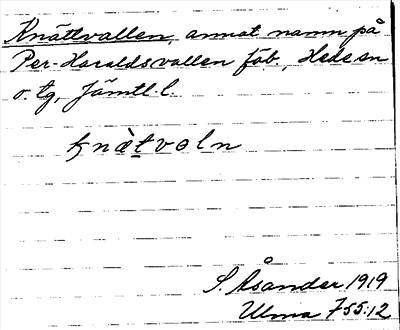 Knättvallen, annat namn på
Per-Haraldsvallen fäb., Hede sn
o. tg, Jämtl. l.
knä̀tvaln
S. Åsander 1919
Ulma 755:12